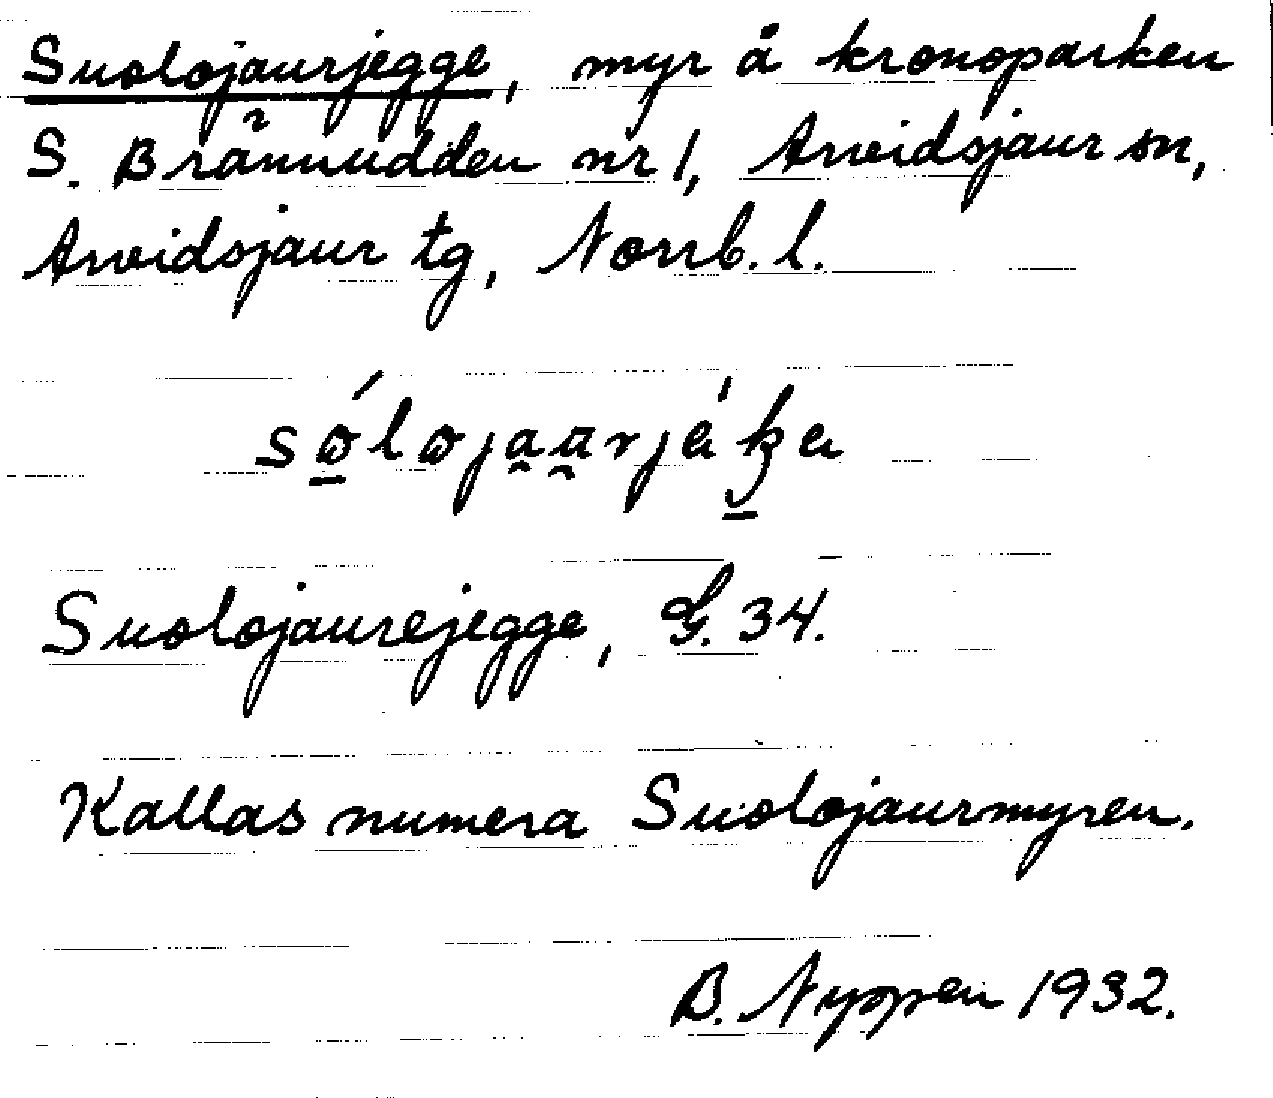 Suolojaurjegge, myr å kronoparken
S. Brännudden nr 1, Arvidsjaur sn,
Arvidsjaur tg, Norrb. l.
Suolojaurejegge, G. 34.
Kallas numera Suolojaurmyren.
B. Nyppen 1932.